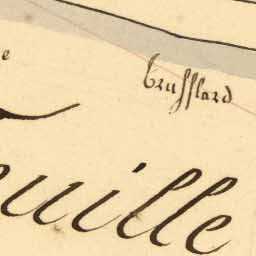 e
brufflard
ouille